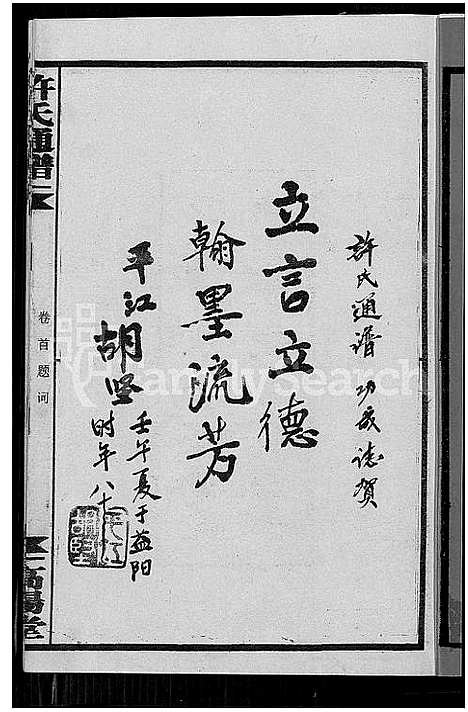 許氏通谱 功成誌賀
立言立德
翰墨流芳
平江胡坚
壬午夏于益阳
时年八十
许氏通譜
卷首题词
高陽堂
FamilySearch